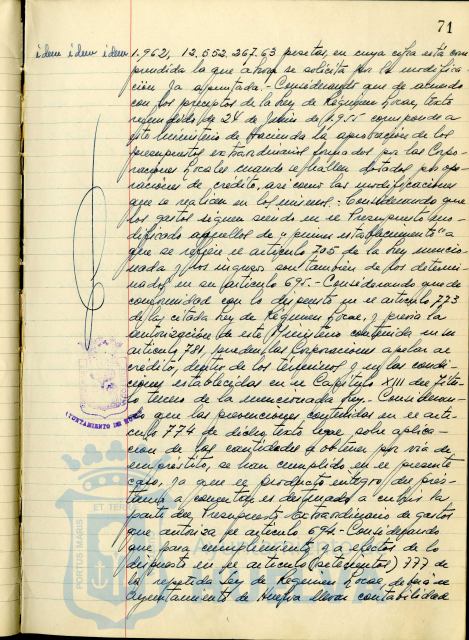 71
idem idem idem
1.962, 12.652.267,63 pesetas, en cuya cifra está com
prendida la que ahora se solicita por la modifica
ción ya apuntada.- Considerando que de acuerdo
con los preceptos de la Ley de Régimen Local, texto
refundido de 24 de Junio de 1.955 corresponde a
este Ministerio de Hacienda la aprobación de los
presupuestos extraordinarios formados por las Corpo-
raciones Locales cuando se hallen dotados por ope-
raciones de crédito, así como las modificaciones
que se realicen en los mismos.- Considerando que
los gastos siguen siendo en el Presupuesto mo-
dificado aquellos de "primer establecimiento" a
que se refiere el artículo 705 de la Ley mencio-
nada y los ingresos son también de los determi-
nados en su artículo 695.- Considerando que de
conformidad con lo dispuesto en el artículo 773
de la citada Ley de Régimen Local, y previa la
autorización de este Ministerio contenida en su
artículo 781, pueden las Corporaciones apelar al
crédito, dentro de los términos y en las condi-
ciones establecidas en el Capítulo XIII del Títu-
lo tercero de la mencionada Ley.- Consideran-
do que las prevenciones contenidas en el artí-
culo 774 de dicho texto legal, sobre aplica-
ción de las cantidades a obtener por vía de
empréstito, se han cumplido en el presente
caso, ya que el producto íntegro del prés-
tamo a concertar es destinado a cubrir la
parte del Presupuesto extraordinario de gastos
que autoriza el artículo 694.- Considerando
que para cumplimiento y a efectos de lo
dispuesto en el artículo (setecientos) 777 de
la repetida Ley de Régimen Local, deberá el
Ayuntamiento de Huelva llevar contabilidad
AYUNTAMIENTO DE
PORTUS MARIS
ET TERRÆ